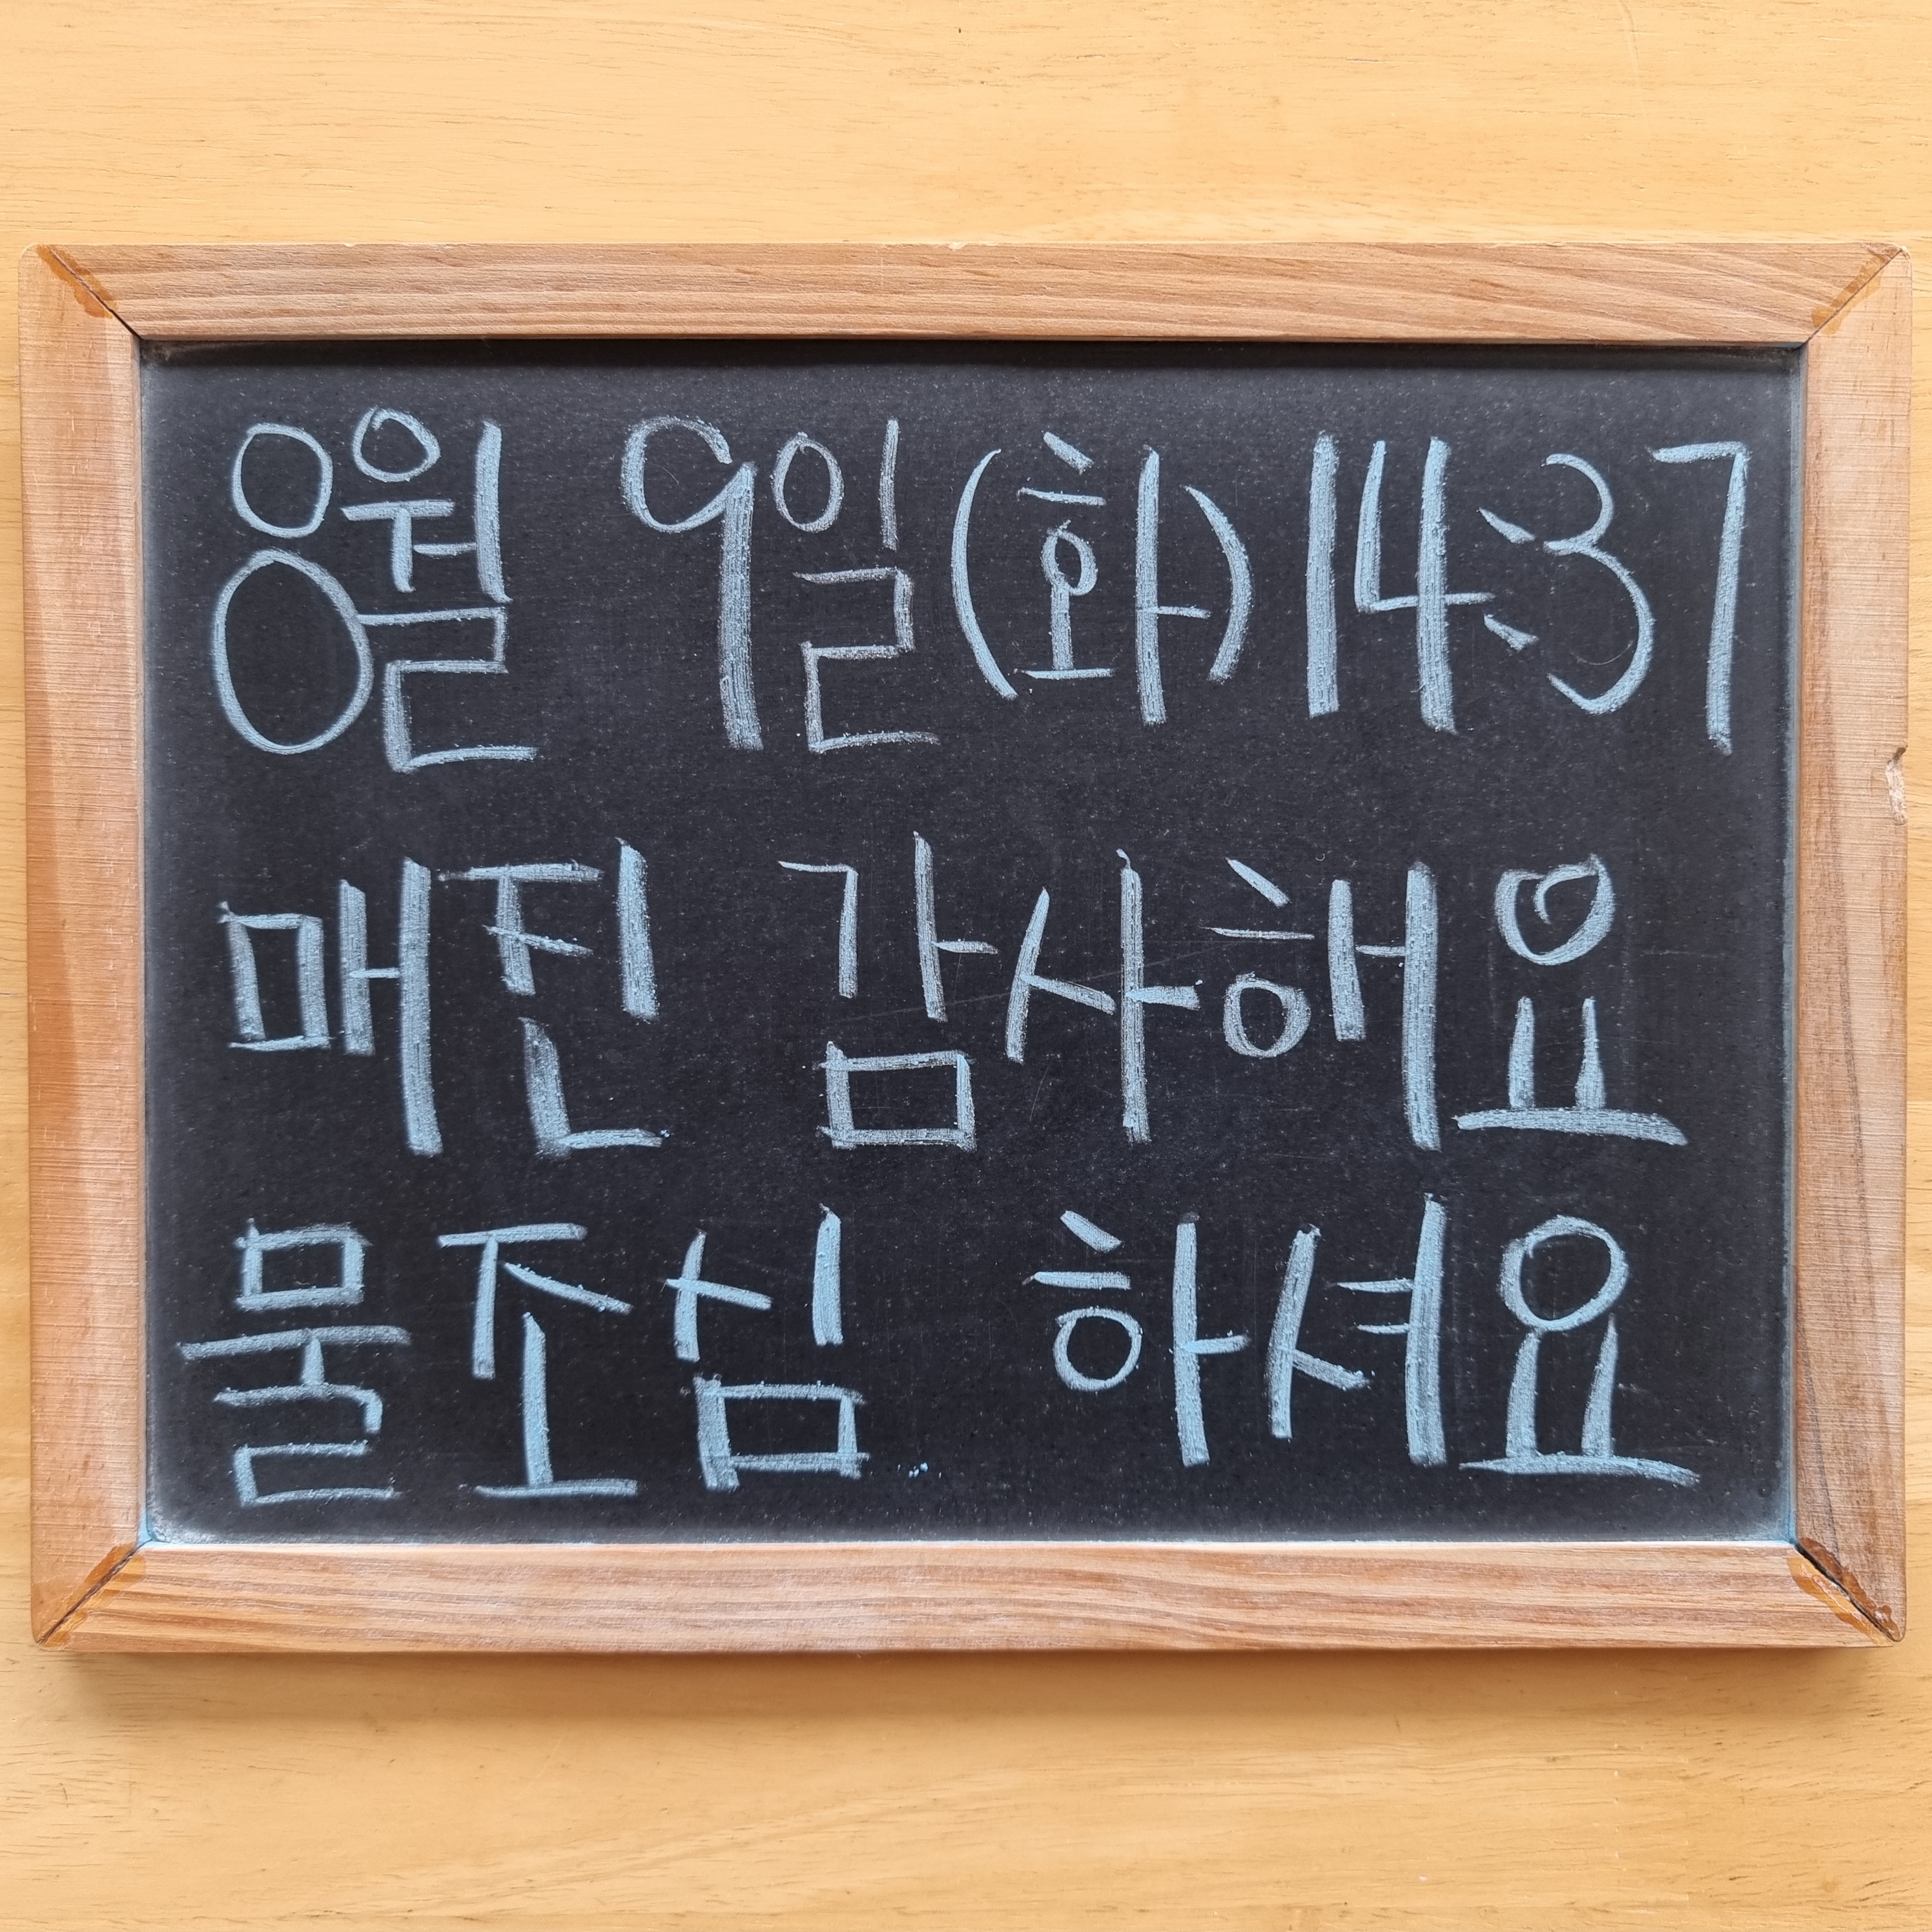 8월 9일(화)14:37
매진 감사해요
물조심 하셔요